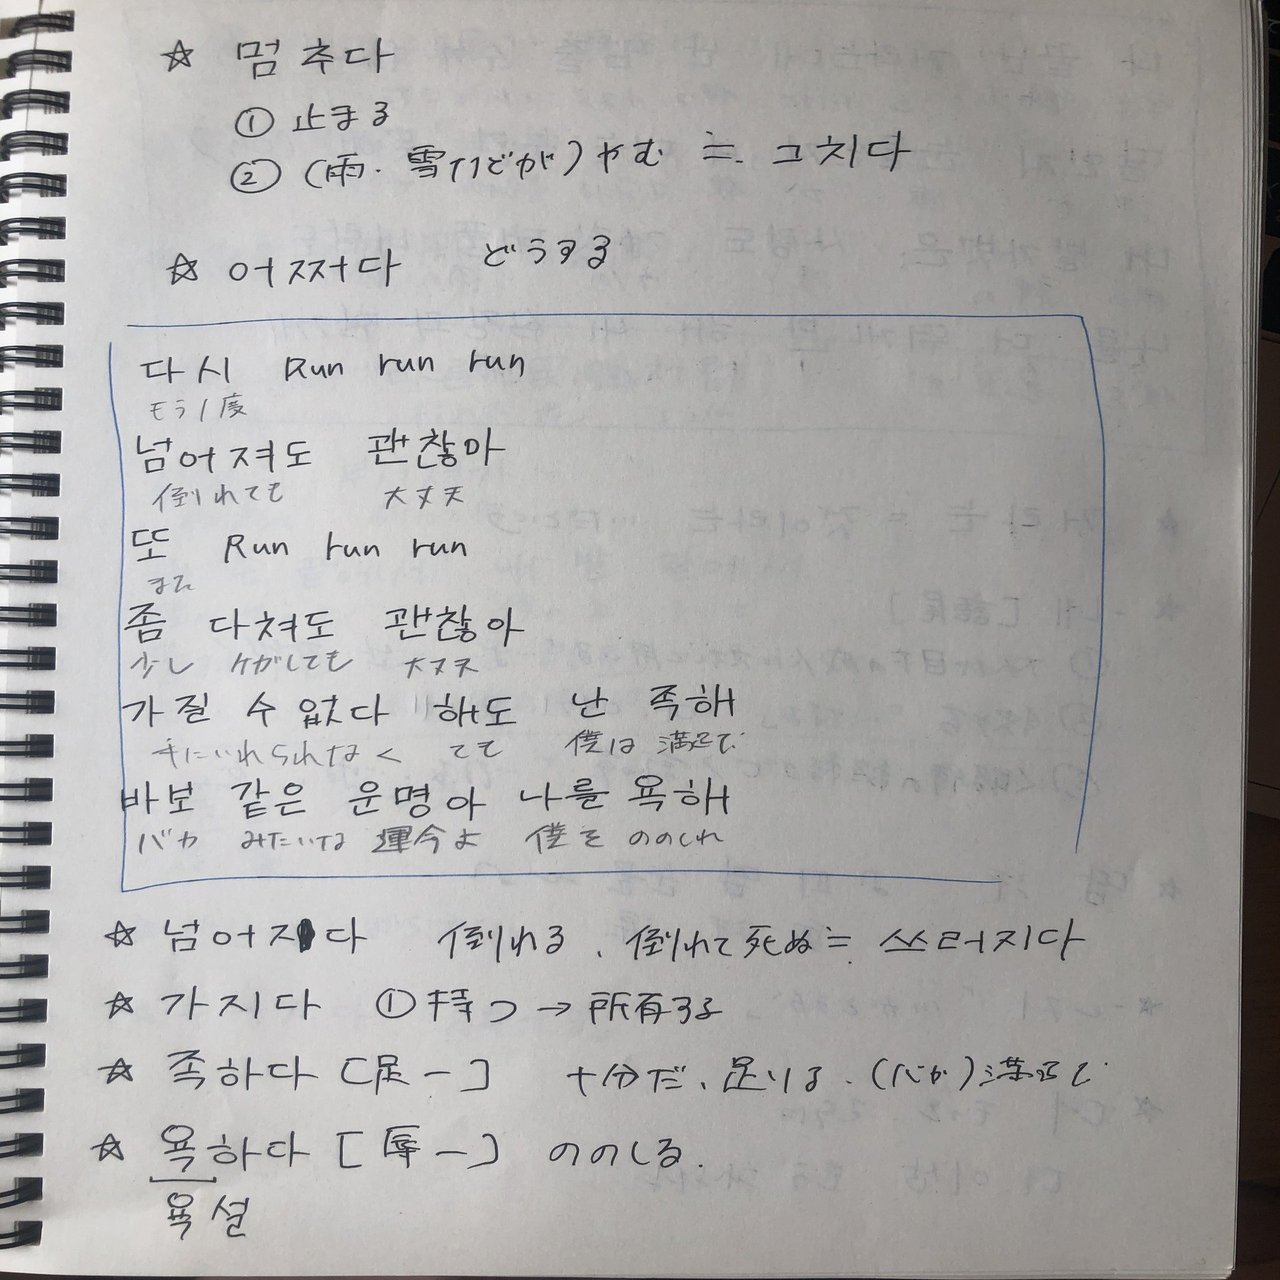 ☆ 멈추다
① 止まる
② (雨・雪などが)やむ ≒ 그치다
☆ 어쩌다 どうする
다시 Run run run
もう1度
넘어져도 괜찮아
倒れても 大丈夫
또 Run run run
また
좀 다쳐도 괜찮아
少し ケガしても 大丈夫
가질 수 없다 해도 난 족해
手にいれられなく ても 僕は 満足で
바보 같은 운명아 나를 욕해
バカ みたいな 運命よ 僕を ののしれ
☆ 넘어지다 倒れる、倒れて死ぬ ≒ 쓰러지다
☆ 가지다 ① 持つ → 所有する
☆ 족하다 [足ー] 十分だ、足りる、(心が)満足で
☆ 욕하다 [辱ー] ののしる.
욕설